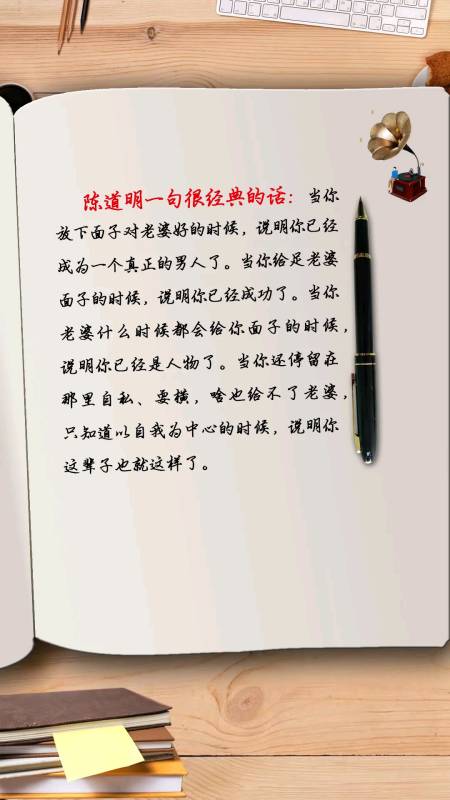 陈道明一句很经典的话：当你
放下面子对老婆好的时候，说明你已经
成为一个真正的男人了。当你给足老婆
面子的时候，说明你已经成功了。当你
老婆什么时候都会给你面子的时候，
说明你已经是人物了。当你还停留在
那里自私、耍横，啥也给不了老婆，
只知道以自我为中心的时候，说明你
这辈子也就这样了。